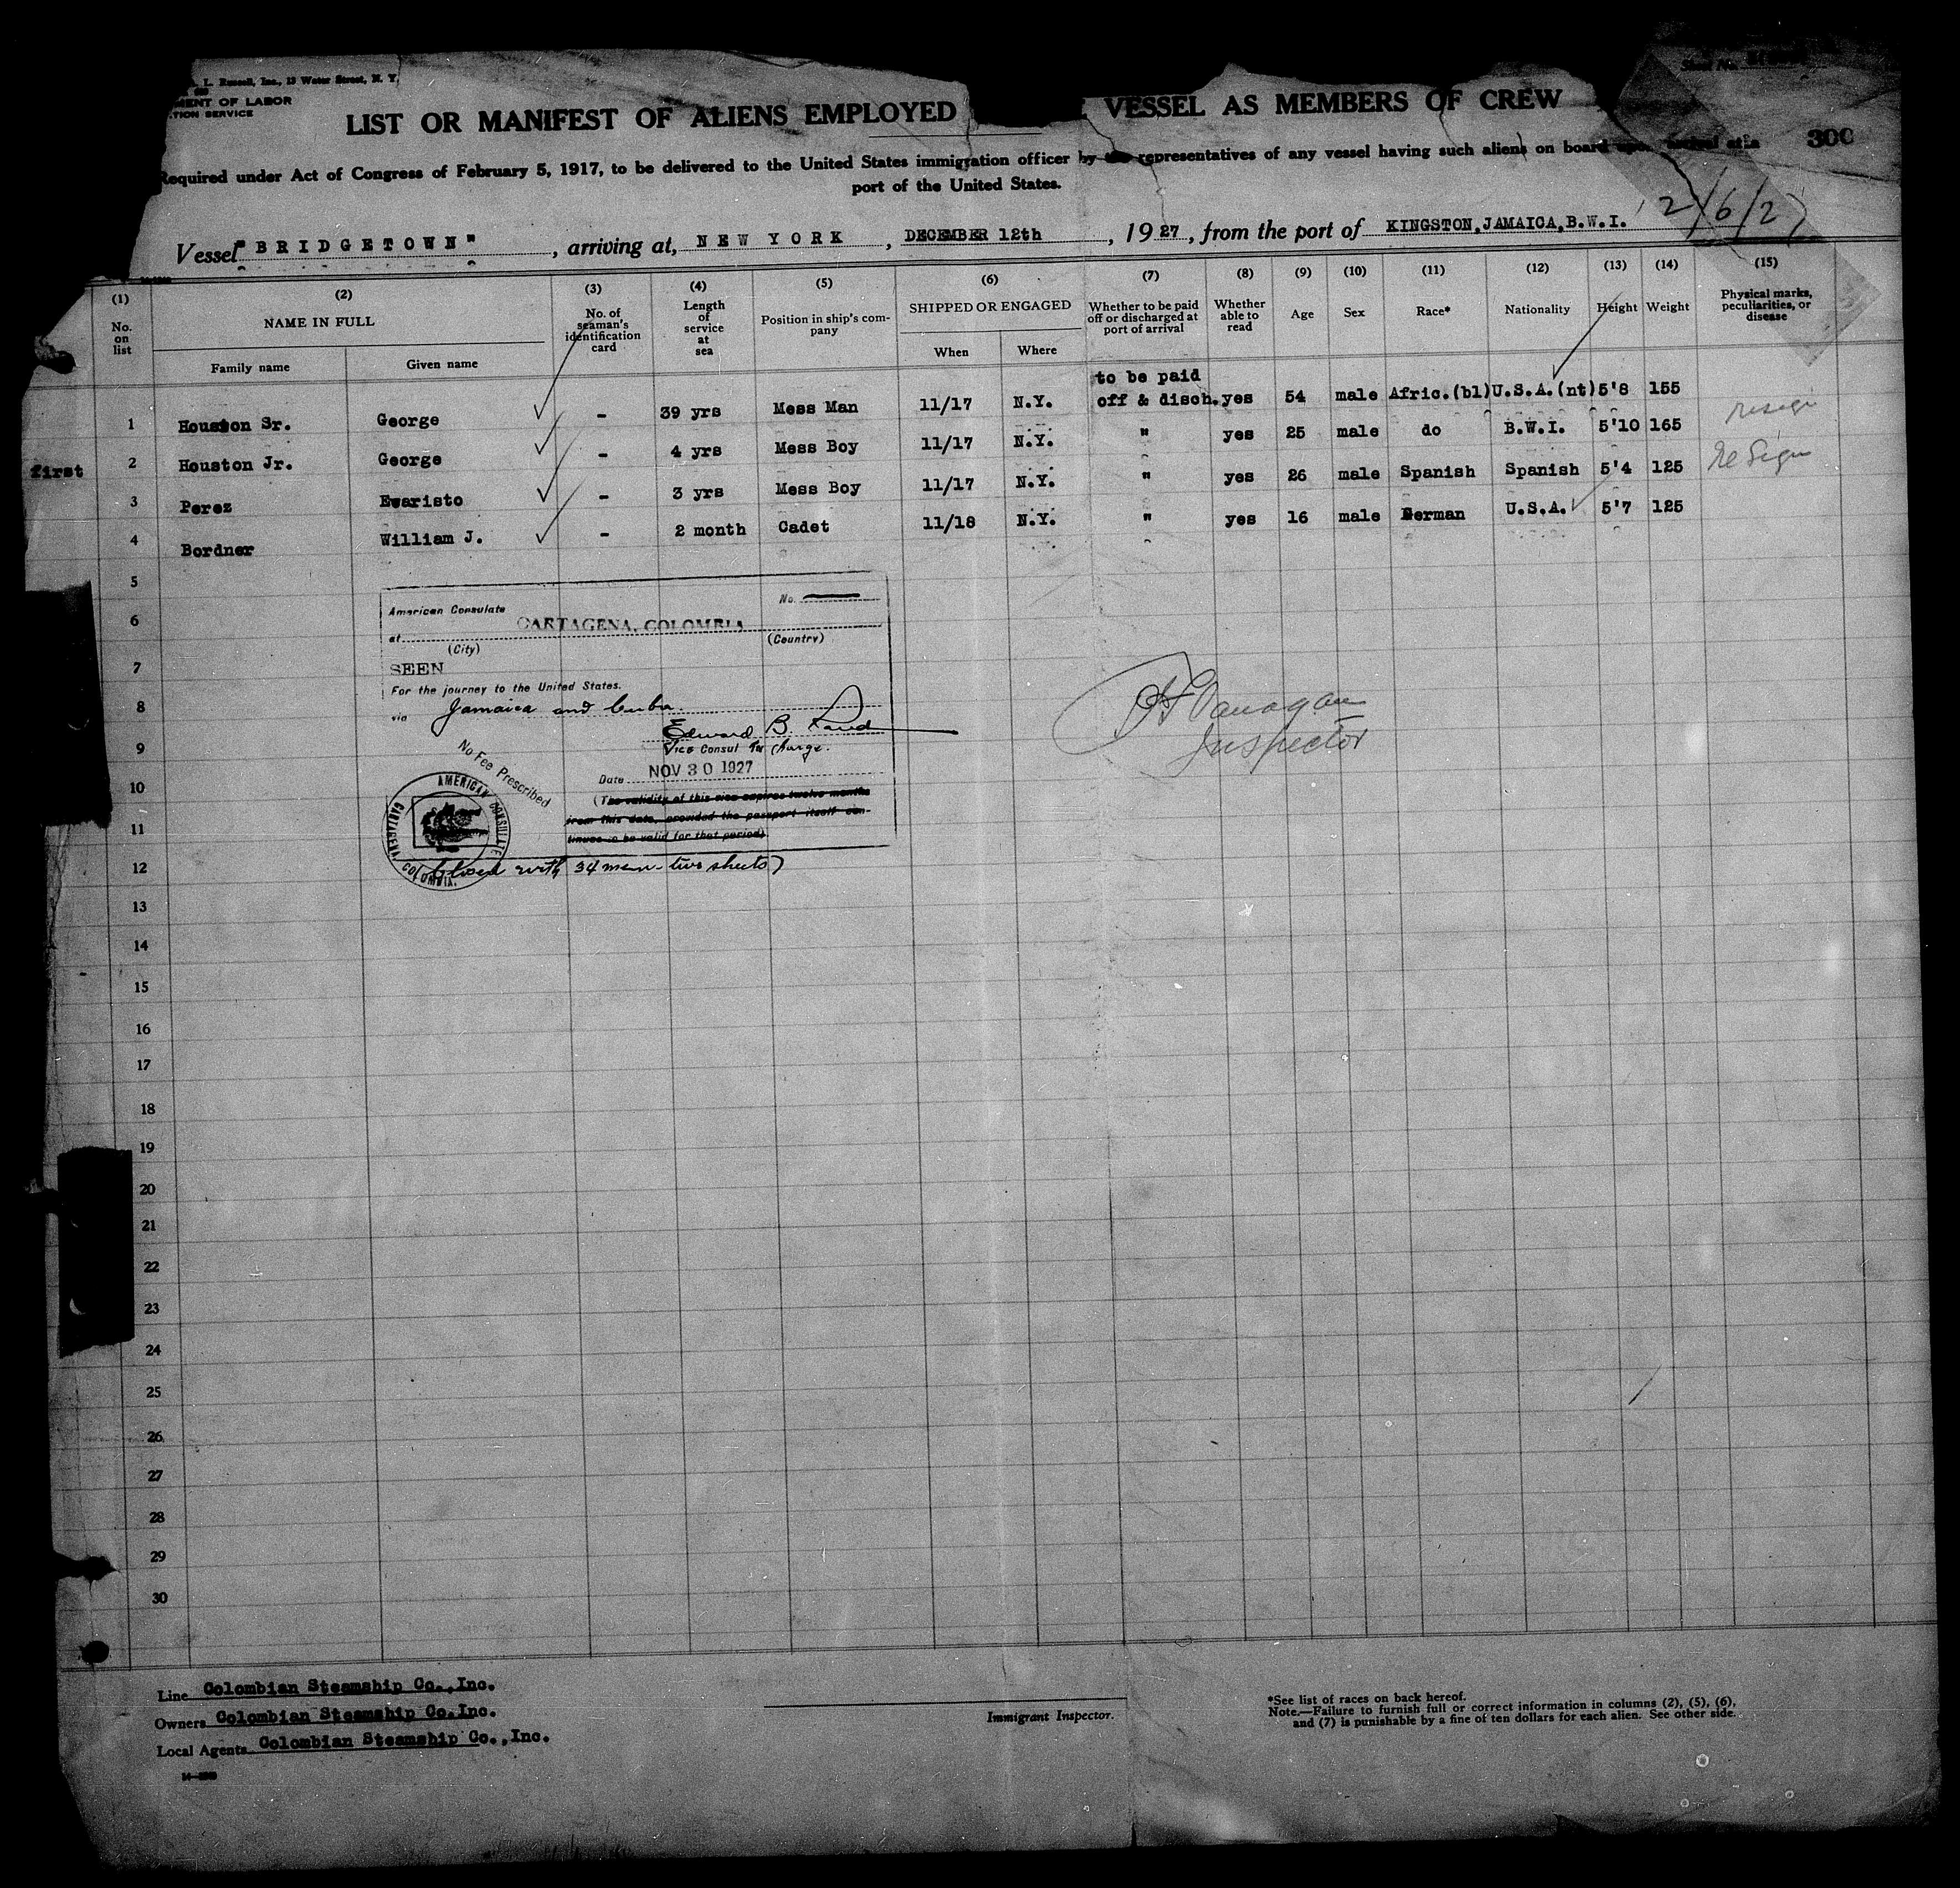 L. Russell, Inc., 13 Water Street, N. Y.
MENT OF LABOR
TION SERVICE
LIST OR MANIFEST OF ALIENS EMPLOYED VESSEL AS MEMBERS OF CREW
300
Required under Act of Congress of February 5, 1917, to be delivered to the United States immigration officer by the representatives of any vessel having such aliens on board upon arrival at a
port of the United States.
Vessel "BRIDGETOWN", arriving at, NEW YORK, DECEMBER 12th, 1927, from the port of KINGSTON, JAMAICA, B.W.I.
(1) (2) (3) (4) (5) (6) (7) (8) (9) (10) (11) (12) (13) (14) (15)
No. on list
NAME IN FULL
Family name
Given name
No. of seaman's identification card
Length of service at sea
Position in ship's company
SHIPPED OR ENGAGED
When
Where
Whether to be paid off or discharged at port of arrival
Whether able to read
Age
Sex
Race*
Nationality
Height
Weight
Physical marks, peculiarities, or disease
to be paid
1 Houston Sr. George - 39 yrs Mess Man 11/17 N.Y. off & disch. yes 54 male Afric.(bl) U.S.A.(nt) 5'8 155
2 Houston Jr. George - 4 yrs Mess Boy 11/17 N.Y. " yes 25 male do B.W.I. 5'10 165 resign
first
3 Perez Evaristo - 3 yrs Mess Boy 11/17 N.Y. " yes 26 male Spanish Spanish 5'4 125 resign
4 Bordner William J. - 2 month Cadet 11/18 N.Y. " yes 16 male German U.S.A. 5'7 125
5
6
7
8
9
10
11
12
13
14
15
16
17
18
19
20
21
22
23
24
25
26
27
28
29
30
American Consulate No.
at CARTAGENA, COLOMBIA
(City) (Country)
SEEN
For the journey to the United States.
via Jamaica and Cuba.
Edward B. Rand
Vice Consul In Charge.
No Fee Prescribed
Date NOV 30 1927
(The validity of this visa expires twelve months
from this date, provided the passport itself con-
tinues to be valid for that period)
AMERICAN CONSULATE
CARTAGENA, COLOMBIA.
(Closed with 34 men - two sheets)
Inspector
Line Colombian Steamship Co., Inc.
Owners Colombian Steamship Co. Inc.
Local Agents Colombian Steamship Co., Inc.
Immigrant Inspector.
*See list of races on back hereof.
Note.—Failure to furnish full or correct information in columns (2), (5), (6),
and (7) is punishable by a fine of ten dollars for each alien. See other side.